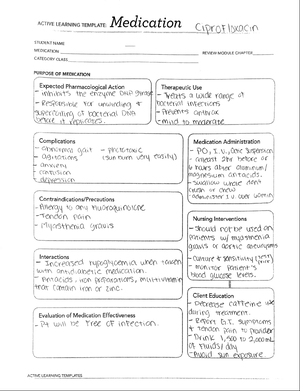 ACTIVE LEARNING TEMPLATE: Medication
Ciprofloxacin
STUDENT NAME
MEDICATION
REVIEW MODULE CHAPTER
CATEGORY CLASS
PURPOSE OF MEDICATION
Expected Pharmacological Action
- inhibits the enzyme DNA gyrase
- Responsible for unwinding &
supercoiling of bacterial DNA
before it replicates.
Therapeutic Use
- Treats a wide range of
bacterial infections
- Prevents anthrax
- mild to moderate
Complications
- abnormal gait
- phototoxic
- agitations
(sunburn very easily)
- anxiety
- confusion
- depression
Medication Administration
- PO, I.V., and suspension
- at least 2hr before or
6 hrs after aluminum/
magnesium antacids.
- swallow whole dont
crush or chew
- administer I.V. over 60min
Contraindications/Precautions
- Allergy to any fluoroquinolone
- Tendon pain
- Myasthenia gravis
Nursing Interventions
- Should not be used on
patients w/ myasthenia
gravis or aortic aneurysms
- Culture & sensitivity
- monitor patient's
blood glucose levels.
Interactions
- Increased hypoglycemia when taken
with antidiabetic medication.
- Antacids, iron preparations, multivitamin
that contain iron or zinc.
Client Education
- Decrease caffeine
during treatment.
- Report G.I. symptoms
& tendon pain to provider
- Drink 1,500 to 2,000mL
of fluids/day
- Avoid sun exposure
Evaluation of Medication Effectiveness
- Pt will be free of infection.
ACTIVE LEARNING TEMPLATES